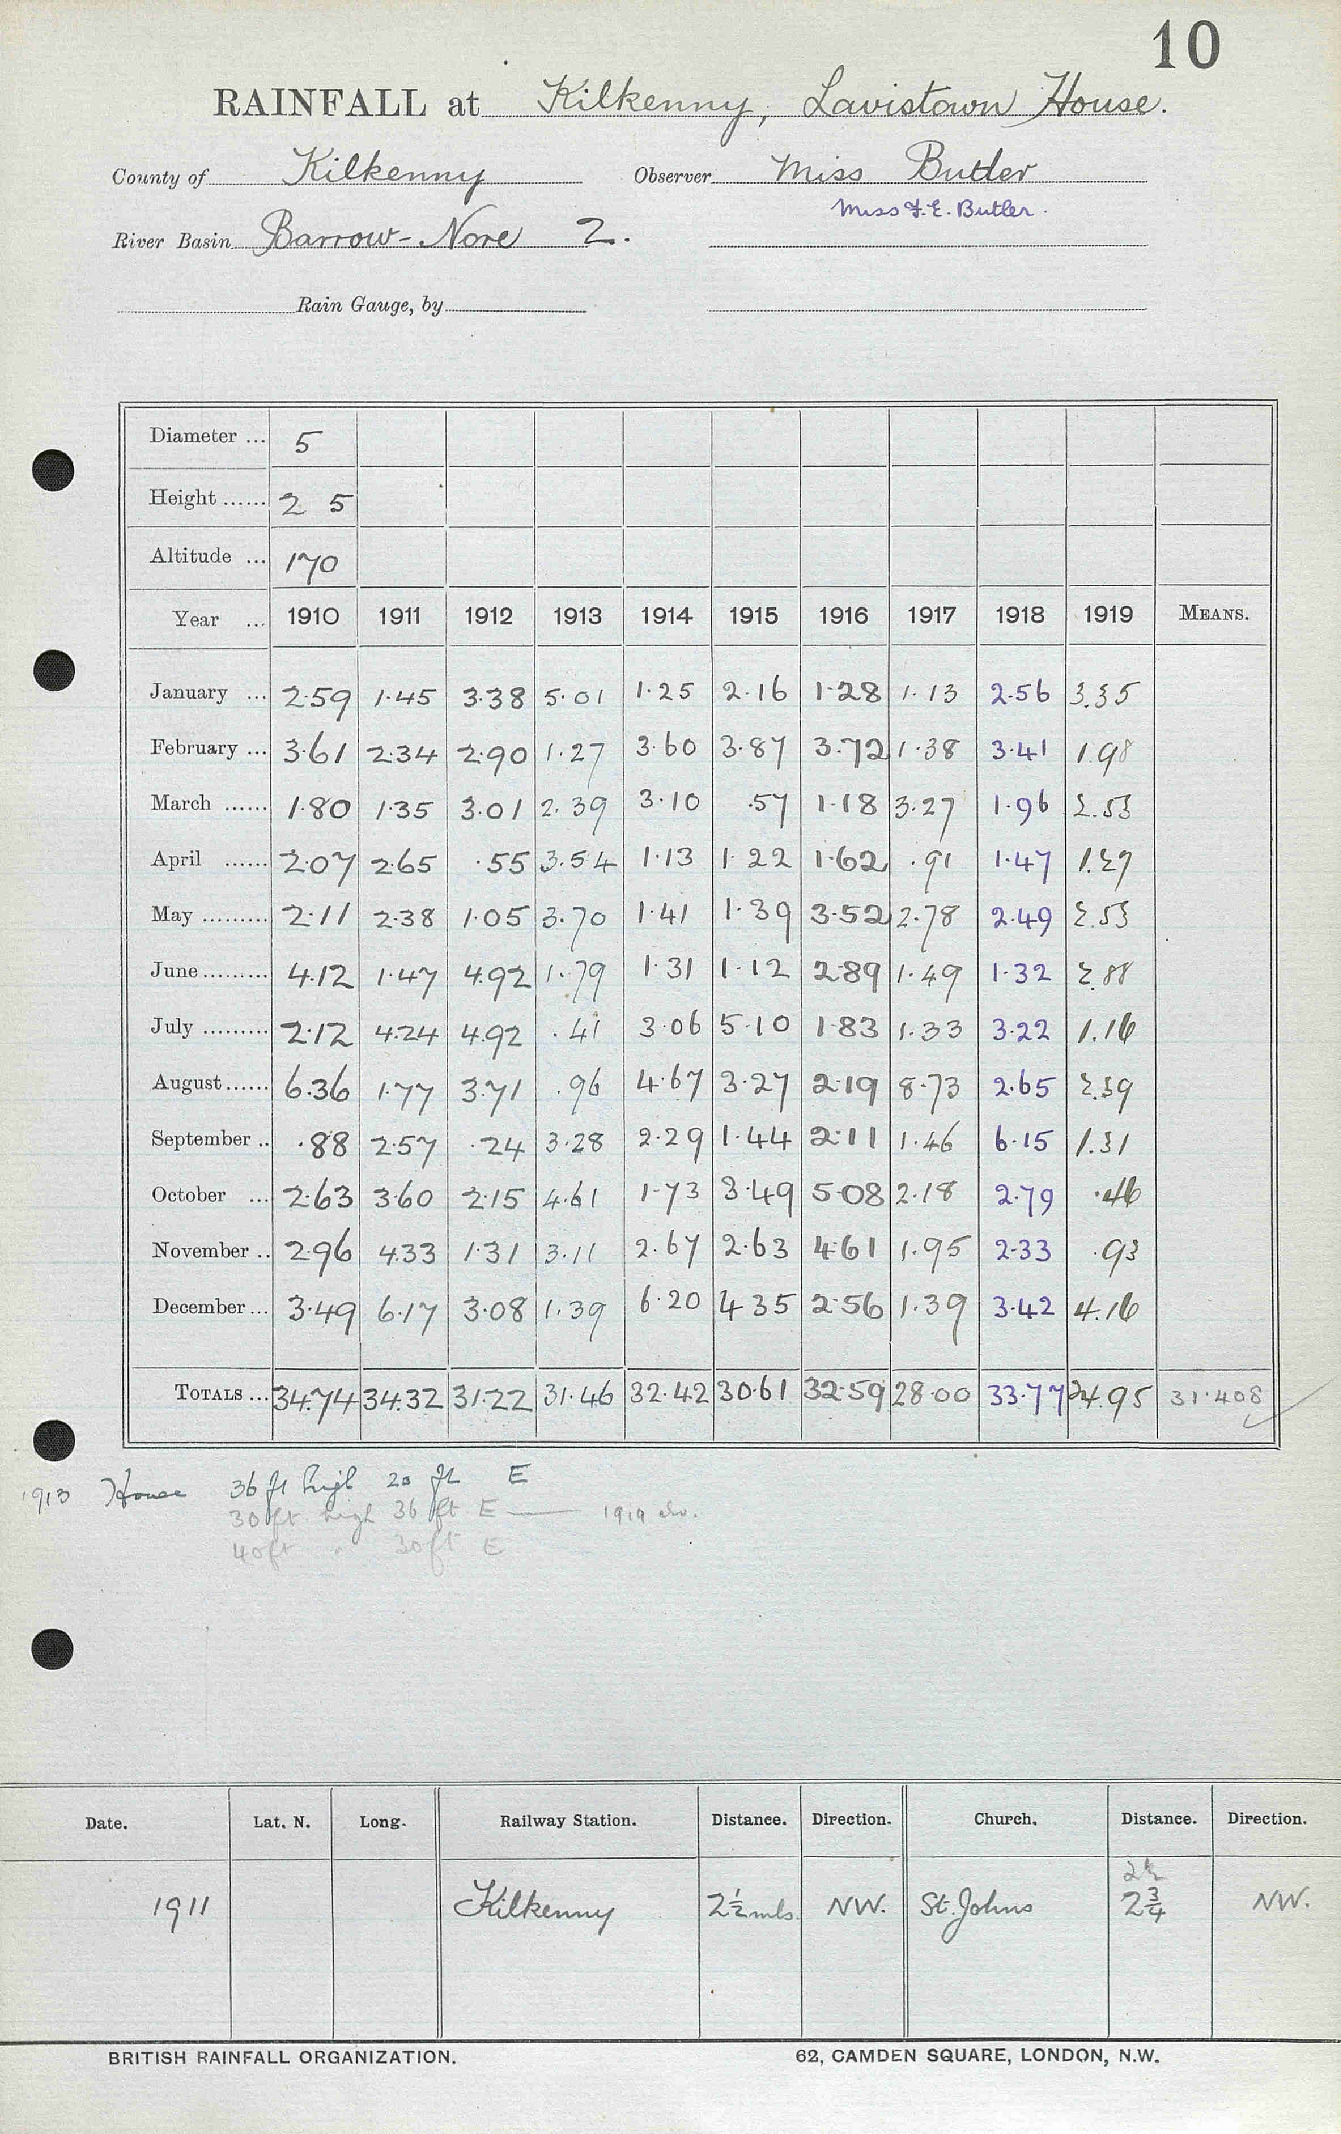 10
RAINFALL at Kilkenny, Lavistown House.
County of Kilkenny Observer Miss Butler
Miss F. E. Butler.
River Basin Barrow-Nore 2.
Rain Gauge, by
Diameter ... 5
Height ...... 2 5
Altitude ... 170
Year ... 1910 1911 1912 1913 1914 1915 1916 1917 1918 1919 MEANS.
January ... 2.59 1.45 3.38 5.01 1.25 2.16 1.28 1.13 2.56 3.35
February ... 3.61 2.34 2.90 1.27 3.60 3.87 3.72 1.38 3.41 1.98
March ...... 1.80 1.35 3.01 2.39 3.10 .57 1.18 3.27 1.96 2.53
April ...... 2.07 2.65 .55 3.54 1.13 1.22 1.62 .91 1.47 1.27
May ......... 2.11 2.38 1.05 3.70 1.41 1.39 3.52 2.78 2.49 2.53
June ......... 4.12 1.47 4.92 1.79 1.31 1.12 2.89 1.49 1.32 2.88
July ......... 2.12 4.24 4.92 .41 3.06 5.10 1.83 1.33 3.22 1.16
August ...... 6.36 1.77 3.71 .96 4.67 3.27 2.19 8.73 2.65 2.39
September .. .88 2.57 .24 3.28 2.29 1.44 2.11 1.46 6.15 1.31
October ... 2.63 3.60 2.15 4.61 1.73 3.49 5.08 2.18 2.79 .46
November .. 2.96 4.33 1.31 3.11 2.67 2.63 4.61 1.95 2.33 .93
December ... 3.49 6.17 3.08 1.39 6.20 4.35 2.56 1.39 3.42 4.16
TOTALS ... 34.74 34.32 31.22 31.46 32.42 30.61 32.59 28.00 33.77 24.95 31.408
1913 House 36 ft high 20 ft E
30 ft high 36 ft E — 1919 do.
40 ft " 30 ft E
Date. Lat. N. Long. Railway Station. Distance. Direction. Church. Distance. Direction.
2½
1911 Kilkenny 2½ mls. NW. St. Johns 2¾ NW.
BRITISH RAINFALL ORGANIZATION. 62, CAMDEN SQUARE, LONDON, N.W.